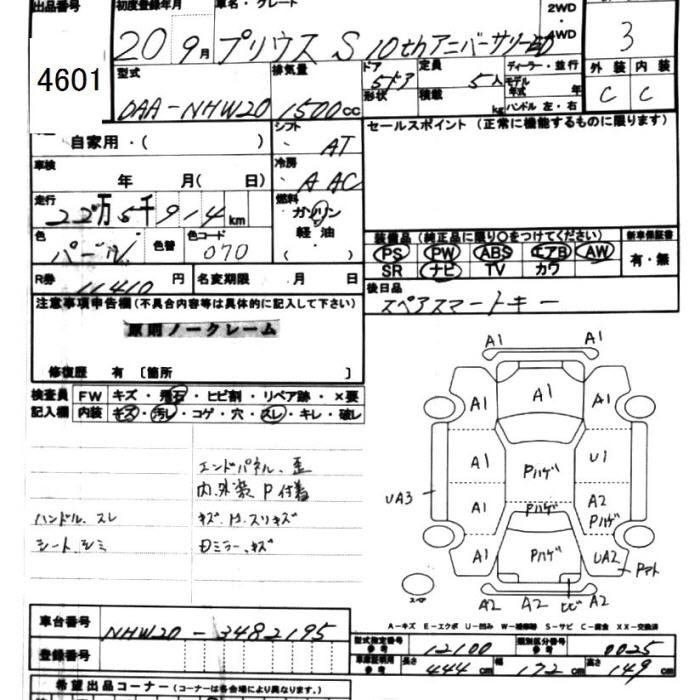 出品番号
4601
初度登録年月
車名・グレード
20 9月 プリウス S 10thアニバーサリーED
2WD
・
4WD
3
外装 内装
C C
型式
DAA-NHW20
排気量
1500cc
ドア
形状
5ドア
定員
5人
積載
kg
ディーラー・並行
モデル
年式 年
ハンドル 左・右
自家用・( )
シフト
AT
セールスポイント(正常に機能するものに限ります)
車検
年 月( 日)
冷房
AAC
走行
22万5千914km
燃料
ガソリン
軽油
( )
色
パール
色替
色コード
070
装備品(純正品に限り○をつけてください)
PS PW ABS エアB AW
SR ナビ TV カワ
新車保証書
有・無
R券
11410円
名変期限 月 日
後日品
スペアスマートキー
注意事項申告欄(不具合内容等は具体的に記入して下さい)
原則ノークレーム
修復歴 有〔箇所 〕
検査員
記入欄
FW キズ・飛石・ヒビ割・リペア跡・×要
内装 キズ・汚レ・コゲ・穴・スレ・キレ・破レ
エンドパネル、歪
内、外装 P付着
ハンドル、スレ
キズ、M、スリキズ
シート、シミ
Dミラー、キズ
A1
A1
A1 A1 A1
A1 Pハゲ U1
UA3
A1 Pハゲ A2
Pハゲ
A1 Pハゲ UA2
Pマト
スペア
A2 A2 ヒビ A2
A-キズ E-エクボ U-凹み W-補修跡 S-サビ C-腐食 XX-交換済
車台番号
NHW20-3482195
登録番号
型式指定番号
参考
12100
類別区分番号
参考
0025
車庫証明用
参考
長さ
444cm
幅
172cm
高さ
149cm
希望出品コーナー(コーナーは各会場により異なります。)